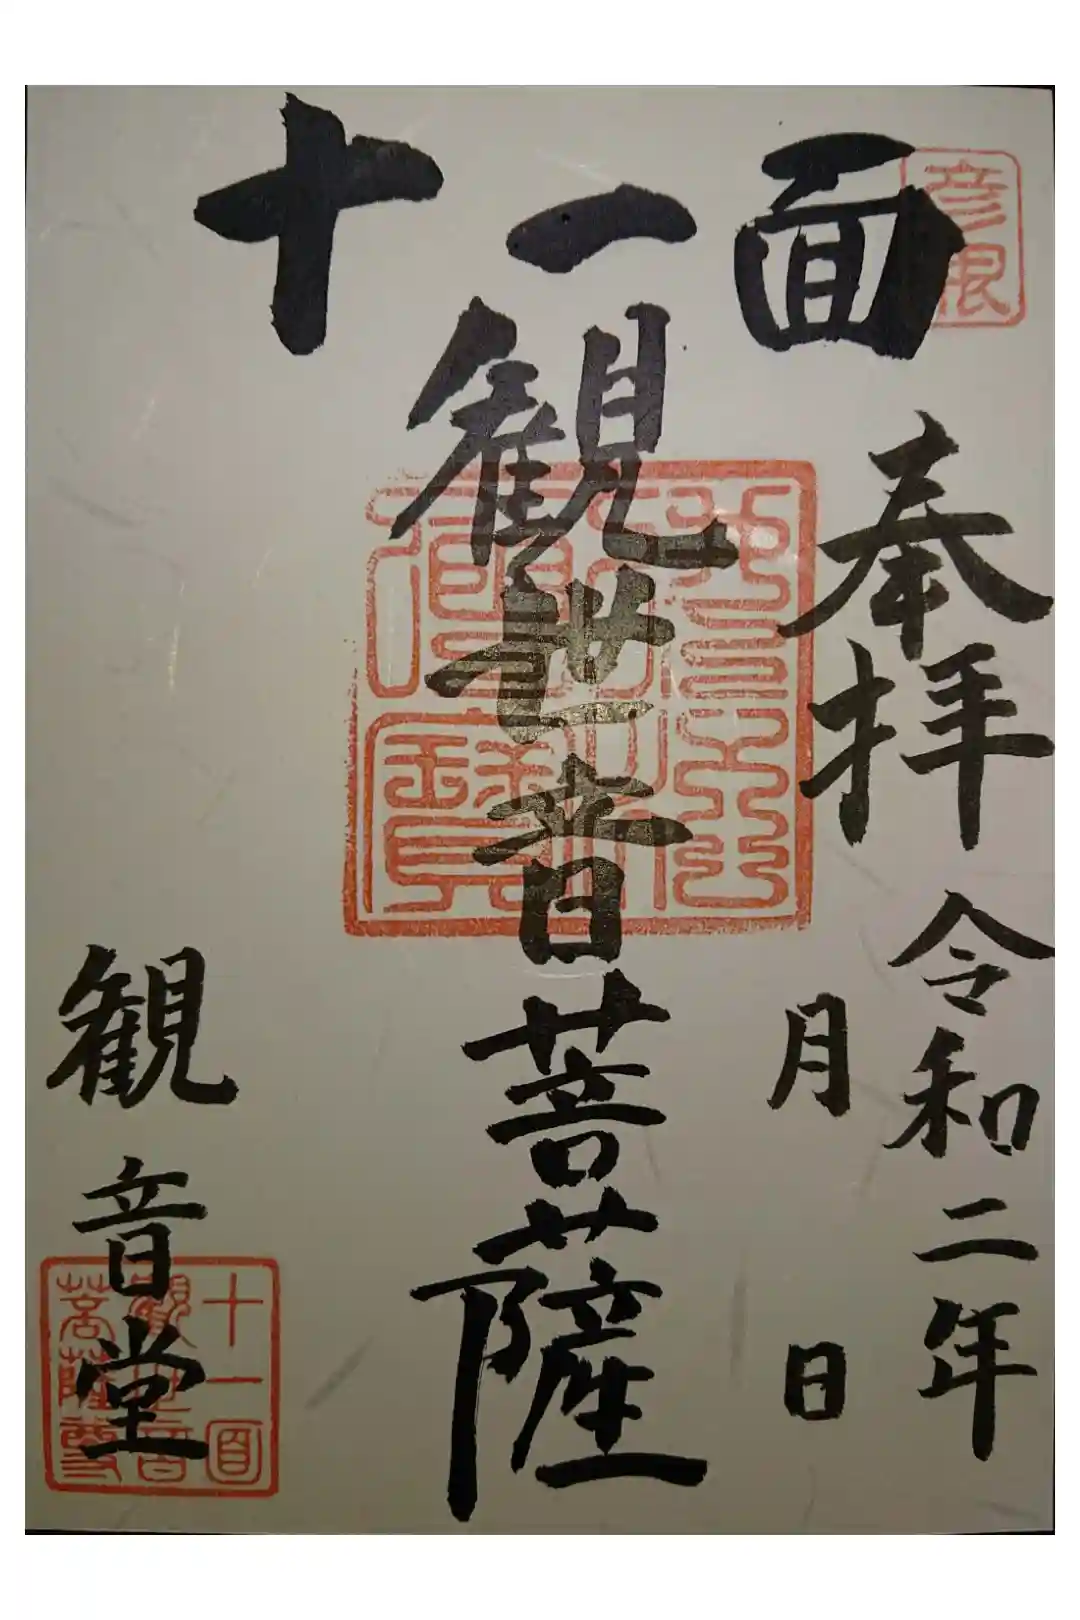 十一面
観世音菩薩
奉拝
令和二年
月 日
観音堂
彦根
十一面
観世音
菩薩尊